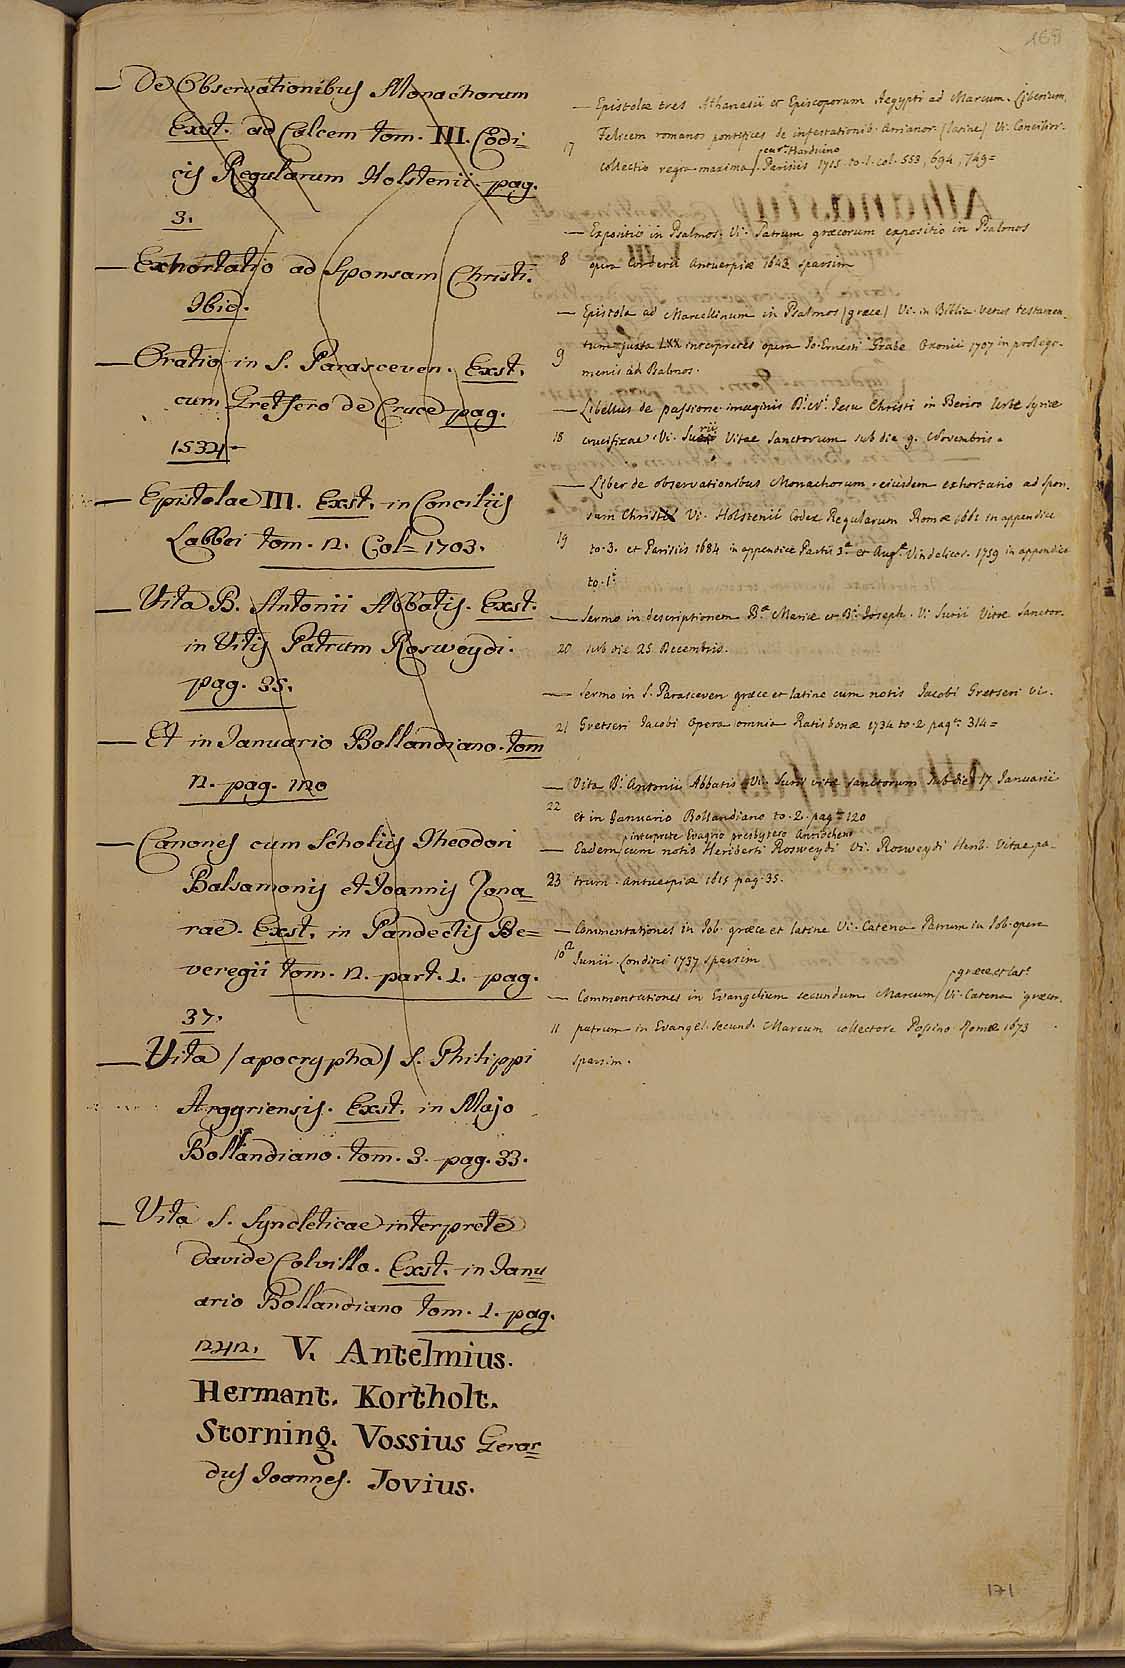 169
— De Observationibus Monachorum
Exst. ad Calcem tom. III. Codi=
cis Regularum Holstenii pag.
3.
— Exhortatio ad Sponsam Christi.
Ibid.
— Oratio in S. Parasceven. Exst.
cum Gretsero de Cruce pag.
1532.
— Epistolae III. Exst. in Conciliis
Labbei tom. 2. Col= 1703.
— Vita B. Antonii Abbatis. Exst.
in Vitis Patrum Rosweydi.
pag. 35.
— Et in Januario Bollandiano. tom
2. pag. 120
— Canones cum Scholiis Theodori
Balsamonis et Joannis Zona=
rae. Exst. in Pandectis Be=
veregii tom. 2. part. 1. pag.
37.
— Vita /apocrypha/ S. Philippi
Argyriensis. Exst. in Majo
Bollandiano. tom. 3. pag. 33.
— Vita S. Syncleticae interprete
Davide Colvillo. Exst. in Janu
ario Bollandiano tom. 1. pag.
242. V. Antelmius.
Hermant. Kortholt.
Storning. Vossius Gerar=
dus Joannes. Jovius.
— Epistolæ tres Athanasii et Episcoporum Aegypti ad Marcum. Liberium,
Felicem romanos pontifices de infestationib. Arrianor. (latine) Vi. Concilior.
17 collectio regia maxima / cur. Harduino / Parisiis 1715. to. 1. col. 553, 694, 749=
— Expositio in Psalmos. Vi. Patrum græcorum expositio in Psalmos
8 opera Corderii Antuerpiæ 1643 sparsim
— Epistola ad Marcellinum in Psalmos (græce) Vi. in Biblia. Vetus testamen.
9 tum juxta LXX interpretes opera Jo. Ernesti Grabe Oxonii 1707 in prolego-
menis ad Psalmos.
— Libellus de passione imaginis D.i N.i Jesu Christi in Beriro Urbe Syriæ
18 crucifixae. Vi. Surii Vitae Sanctorum sub die 9. Novembris.
— Liber de observationibus Monachorum. eiusdem exhortatio ad spon.
sam Christi Vi. Holstenii Codex Regularum Romæ 1661 in appendice
19 to. 3. et Parisiis 1684 in appendice Partis 3.æ et Aug.æ Vindelicor. 1759 in appendice
to. 1.i
— Sermo in descriptionem B.æ Mariæ et B.i Joseph. Vi. Surii Vitæ Sanctor.
20 sub die 25 Decembris.
— Sermo in S. Parasceven græce et latine cum notis Jacobi Gretseri Vi.
21 Gretseri Jacobi Opera omnia Ratisbonæ 1734 to. 2 pag. 314=
— Vita B.i Antonii Abbatis Vi. Surii vitæ sanctorum sub die 17 Januarii
22 et in Januario Bollandiano to. 2. pag. 120
— Eadem / interprete Evagrio presbytero Antiocheno / cum notis Heriberti Rosweydi Vi. Rosweydi Herib. Vitae pa-
23 trum. Antuerpiæ 1615 pag. 35.
— Commentationes in Job græce et latine Vi. Catena Patrum in Job. opera
10 Junii Londini 1737 sparsim
— Commentationes in Evangelium secundum Marcum / græce et lat.e / Vi. Catena græcor.
11 patrum in Evangel. secund. Marcum collectore Possino Romæ 1673
sparsim.
171